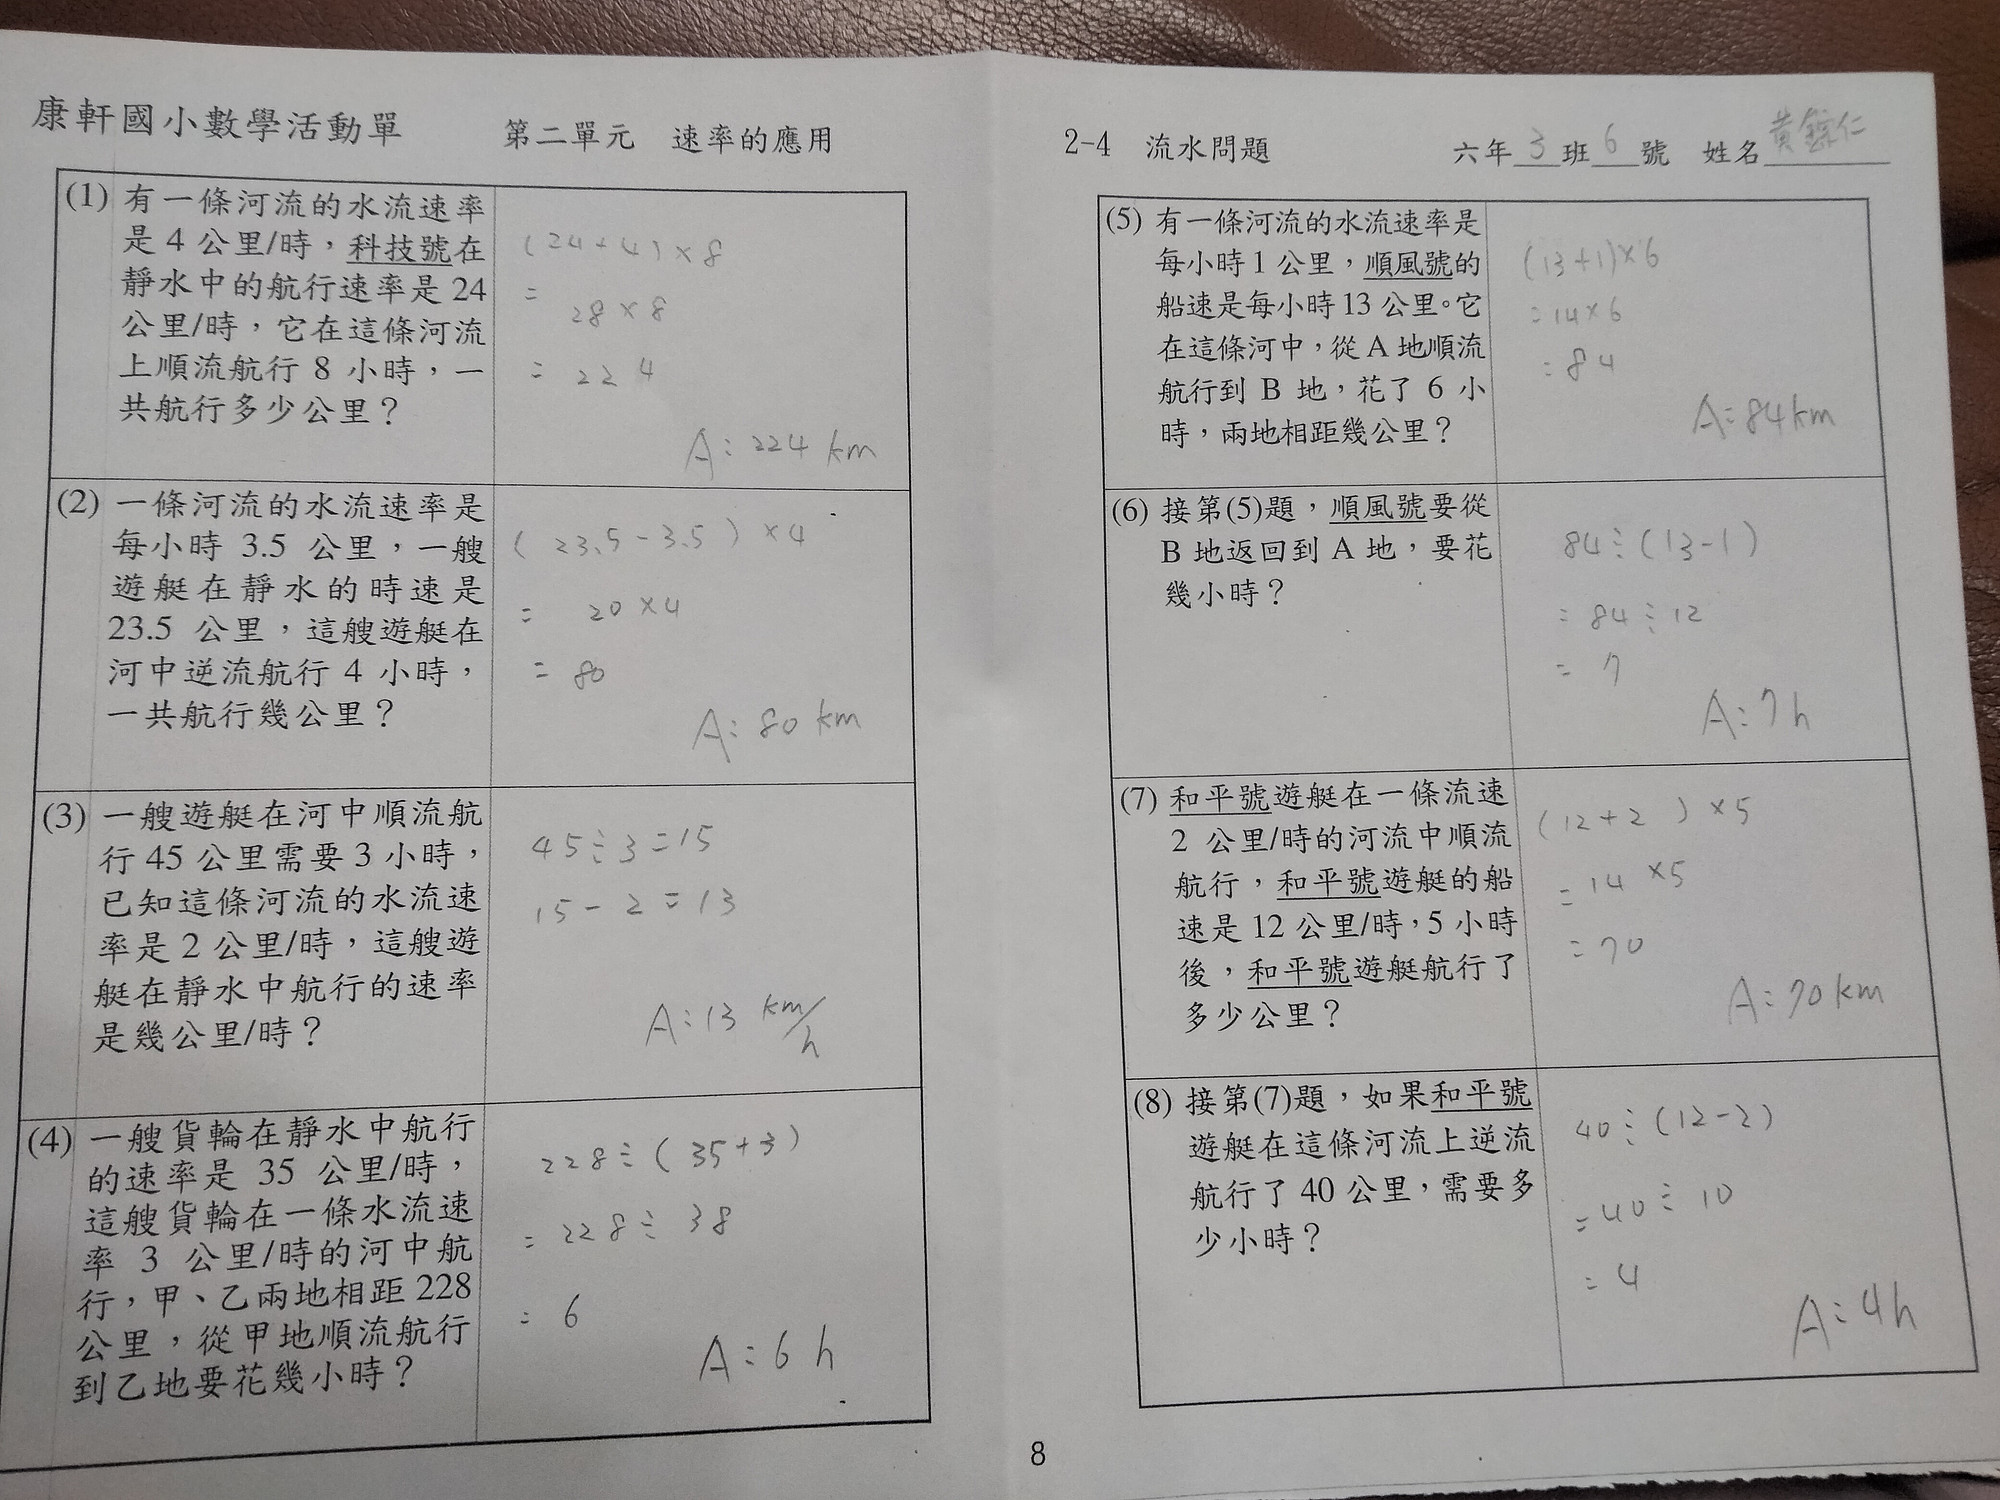 康軒國小數學活動單 第二單元 速率的應用 2-4 流水問題 六年3班6號 姓名黃 仁
(1) 有一條河流的水流速率
是 4 公里/時，科技號在
靜水中的航行速率是 24
公里/時，它在這條河流
上順流航行 8 小時，一
共航行多少公里？
(24+4)×8
= 28×8
= 224
A:224 km
(2) 一條河流的水流速率是
每小時 3.5 公里，一艘
遊艇在靜水的時速是
23.5 公里，這艘遊艇在
河中逆流航行 4 小時，
一共航行幾公里？
(23.5-3.5)×4
= 20×4
= 80
A:80 km
(3) 一艘遊艇在河中順流航
行 45 公里需要 3 小時，
已知這條河流的水流速
率是 2 公里/時，這艘遊
艇在靜水中航行的速率
是幾公里/時？
45÷3=15
15-2=13
A:13 km/h
(4) 一艘貨輪在靜水中航行
的速率是 35 公里/時，
這艘貨輪在一條水流速
率 3 公里/時的河中航
行，甲、乙兩地相距 228
公里，從甲地順流航行
到乙地要花幾小時？
228÷(35+3)
= 228÷38
= 6
A:6 h
(5) 有一條河流的水流速率是
每小時 1 公里，順風號的
船速是每小時 13 公里。它
在這條河中，從 A 地順流
航行到 B 地，花了 6 小
時，兩地相距幾公里？
(13+1)×6
=14×6
=84
A:84km
(6) 接第(5)題，順風號要從
B 地返回到 A 地，要花
幾小時？
84÷(13-1)
= 84÷12
= 7
A:7 h
(7) 和平號遊艇在一條流速
2 公里/時的河流中順流
航行，和平號遊艇的船
速是 12 公里/時，5 小時
後，和平號遊艇航行了
多少公里？
(12+2)×5
= 14×5
= 70
A:70 km
(8) 接第(7)題，如果和平號
遊艇在這條河流上逆流
航行了 40 公里，需要多
少小時？
40÷(12-2)
=40÷10
= 4
A:4h
8